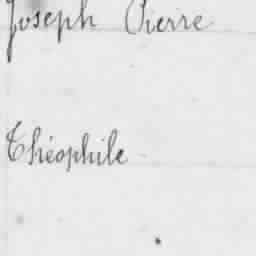 Joseph Pierre
Théophile